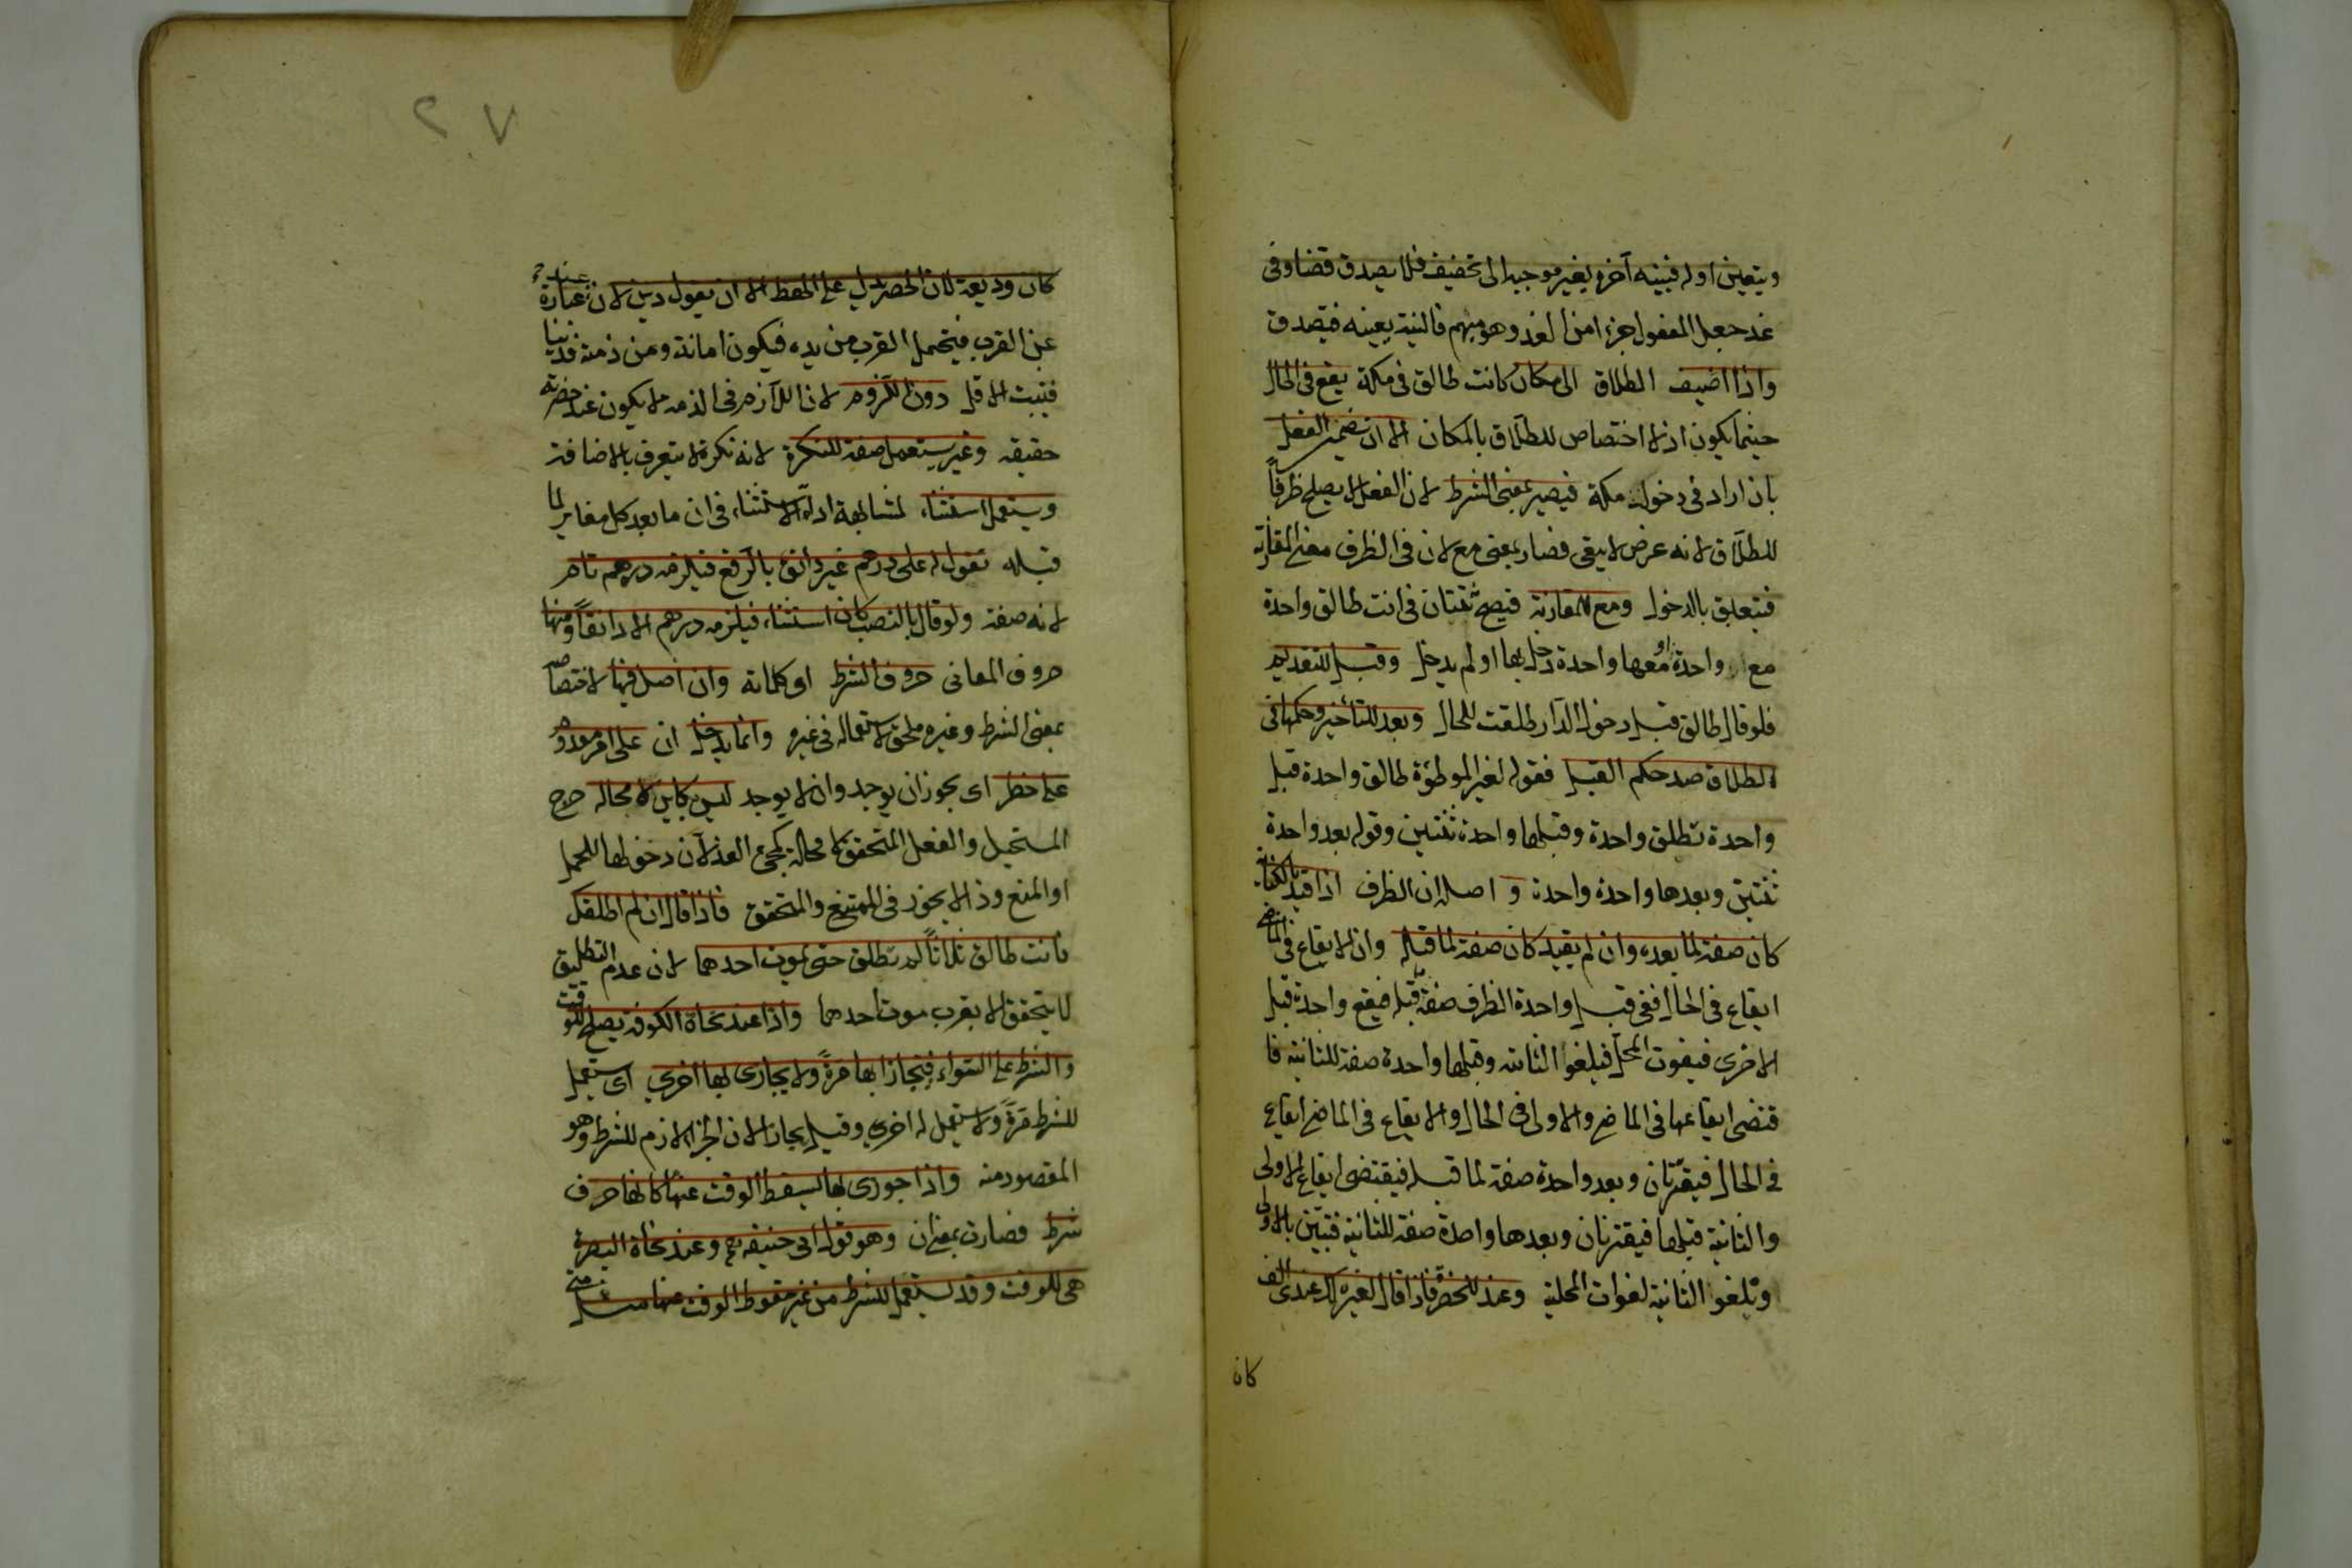 ويتعين اوله فبنيته آخره يغير موجبه الى تخفيف فلا يصدق قضا وفى
غد جعل المفعول جزء امن الغد وهو مبهم فالنية يعينه فيصدق
واذا اضيف الطلاق الى مكان كانت طالق فى مكة يقع فى الحال
حيثما يكون اذ لا اختصاص للطلاق بالمكان الا ان يضمر الفعل
بان اراد فى دخول مكة فيصير بمعنى الشرط لان الفعل لا يصلح ظرفاً
للطلاق لانه عرض لا يبقى فصار بمعنى مع لان فى الظرف معنى المقارنة
فيتعلق بالدخول ومع للمقارنة فيصح ثنتان فى انت طالق واحدة
مع واحدة او معها واحدة دخل بها او لم يدخل وقبل للتقديم
فلو قال طالق قبل دخول الدار طلقت للحال وبعد للتأخير وحكمها فى
الطلاق ضد حكم القبل فقوله لغير الموطؤة طالق واحدة قبل
واحدة تطلق واحدة وقبلها واحدة ثنتين وقوله بعد واحدة
ثنتين وبعدها واحدة واحدة و اصله ان الظرف اذا قيد بالكناية
كان صفة لما بعده وان لم يقيد كان صفة لما قبله وان الايقاع فى الماضى
ايقاع فى الحال ففى قبل واحدة الظرف صفة لما قبله فيقع واحدة قبل
الاخرى فيفوت المحل فيلغوا الثانية وقبلها واحدة صفة للثانية فا
قتضى ايقاعها فى الماضى والاولى فى الحال والايقاع فى الماضى ايقاع
فى الحال فيقترنان وبعد واحدة صفة لما قبله فيقتضى ايقاع الاولى
والثانية قبلها فيقترنان وبعدها واحدة صفة للثانية فتبين بالاولى
وتلغوا الثانية لفوات المحلية وعند للحضرة فاذا قال لغيره لك عندى الف
كان
كان وديعة لان الحضرة يدل على الحفظ الا ان يقول دين لان عند عبارة
عن القرب فيحتمل القرب من يده فيكون امانة ومن ذمته فدينا
فيثبت الاقل دون اللزوم لان اللازم فى الذمه لا يكون عند حضرته
حقيقه وغير يستعمل صفة للنكرة لانه نكرة لا يتعرف بالاضافة
ويستعمل استثناء لمشابهة اداة الاستثناء فى ان ما بعد كل مغاير لما
قبله تقول له على درهم غير دانق بالرفع فيلزمه درهم تام
لانه صفة ولو قال بالنصب كان استثناء فيلزمه درهم الا دانقاً ومنها
حروف المعانى حروف الشرط او كلماته وان اصل فيها لاختصاصه
بمعنى الشرط وغيره ملحق لاستعماله فى غيره وانما يدخل ان على امر معدوم
على خطر اى يجوز ان يوجد وان لا يوجد ليس بكاين لا محاله خرج
المستحيل والفعل المتحقق لا محالة كمجئ الغد لان دخولها للحمل
او المنع وذا لا يجوز فى الممتنع والمتحقق فاذا قال ان لم اطلقك
فانت طالق ثلاثاً لم تطلق حتى يموت احدهما لان عدم التطليق
لا يتحقق الا بقرب موت احدهما واذا عند نحاة الكوفة يصلح للوقت
والشرط على السواء فيجازا بها مرةً ولا يجازى بها اخرى اى يستعمل
للشرط مرةً ولا يستعمل له اخرى وقيل يجازا لان الجزاء لازم للشرط وهو
المقصود منه واذا جوزى بها يسقط الوقت عنها كانها حرف
شرط فصارت بمعنى ان وهو قول ابى حنيفه رح وعند نحاة البصرة
هى للوقت وقد يستعمل للشرط من غير سقوط الوقت عنها مثل متى
٧٢